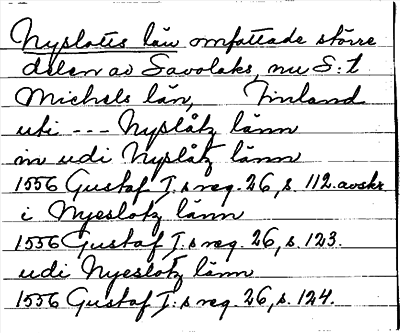 Nyslotts län omfattade större
delen av Savolaks, nu S:t
Michels län, Finland
uti --- Nyslåtz länn
in udi Nyslåtz länn
1556 Gustaf I:s reg. 26, s. 112. avskr.
i Nyeslotz länn
1556 Gustaf I:s reg. 26, s. 123.
udi Nyeslotz länn
1556 Gustaf I:s reg. 26, s. 124.